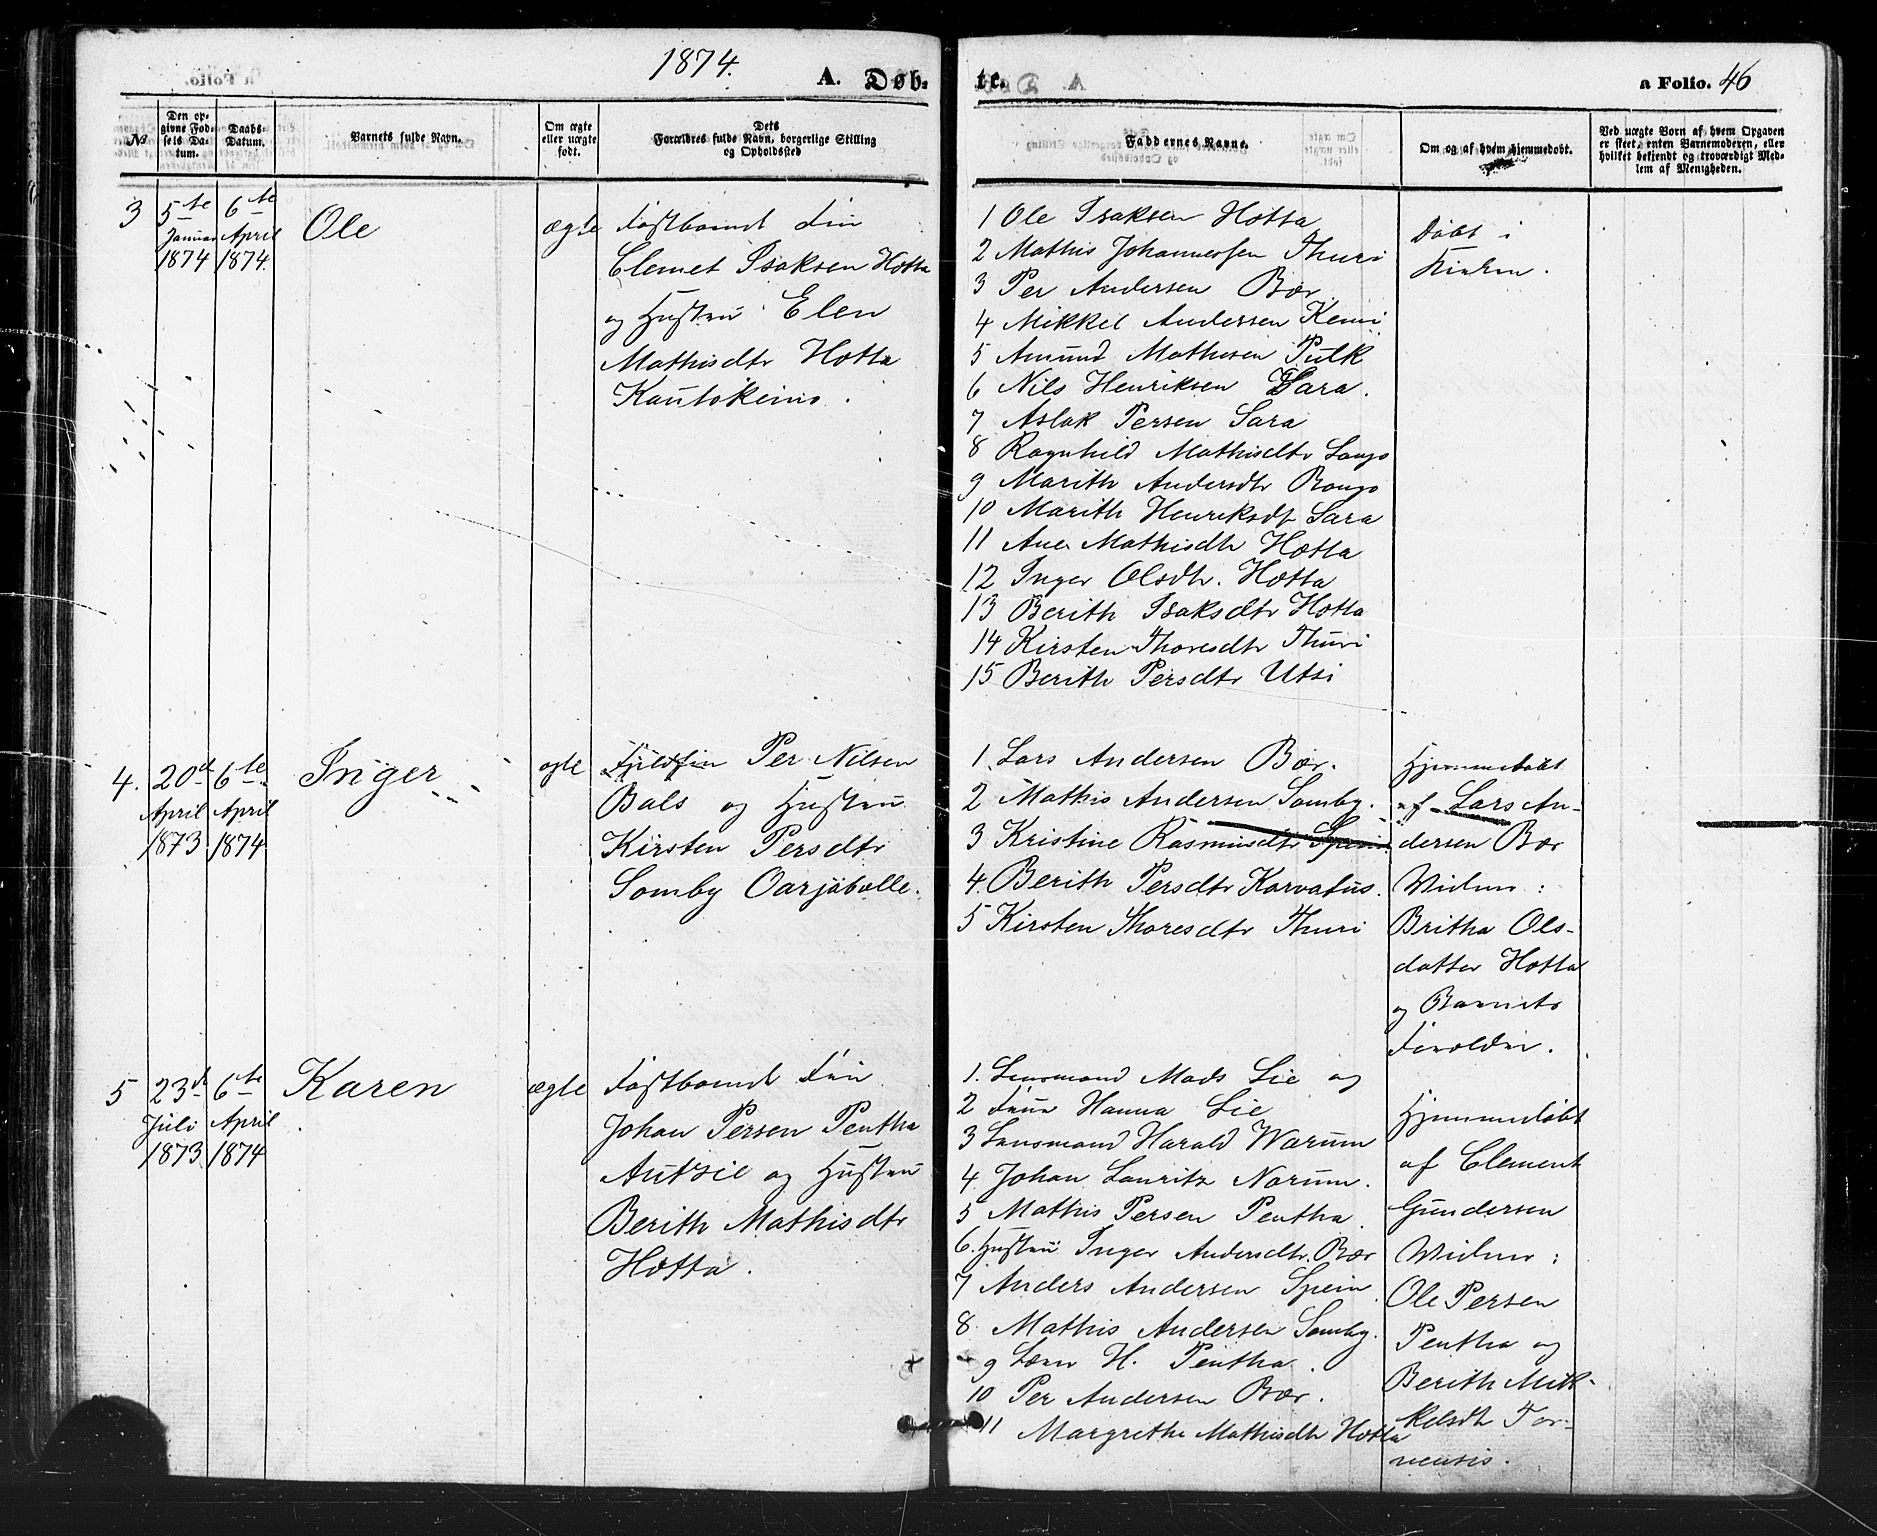 1874.
A. Døb=
te.
a Folio. 46
№
Den op=
givne Fød=
sels Da=
tum.
Daabs=
Datum.
Barnets fulde Navn.
Om ægte
eller uægte
født.
Dets
Forældres fulde Navn, borgerlige Stilling
og Opholdssted
Faddernes Navne.
Om og af hvem hjemmedøbt.
Ved uægte Børn af hvem Opgaven
er skeet, enten Barnemoderen, eller
hvilket bekjendt og troværdigt Med=
lem af Menigheden.
3
5te
Januar
1874
6te
April
1874.
Ole
ægte
Fastboende Fin
Clemet Isaksen Hætta
og Hustru Elen
Mathisdtr Hætta
Kautokeino.
1 Ole Isaksen Hætta
2 Mathis Johannessen Thuri
3 Per Andersen Bær
4 Mikkel Andersen Kemi
5 Amund Mathisen Pulk
6 Nils Henriksen Sara.
7 Aslak Persen Sara
8 Ragnhild Mathisdtr
9 Marith Andersdtr Bongo
10 Marith Henriksdt Sara
11 Ane Mathisdtr Hætta
12 Inger Olsdtr. Hætta
13 Berith Isaksdtr Hætta
14 Kirsten Thoresdtr Thuri
15 Berith Persdtr Utsi
Døbt i
Kirken.
4.
20d
April
1873
6te
April
1874
Inger
ægte
Fjeldfin Per Nilsen
Bals og Hustru
Kirsten Persdtr
Somby Oarjabælle.
1. Lars Andersen Bær.
2 Mathis Andersen Somby.
3 Kristine Rasmusdtr Spein
4. Berith Persdtr Karvatus.
5 Kirsten Thoresdtr Thuri
Hjemmedøbt
af Lars An-
dersen Bær
Vidner:
Britha Ols-
datter Hætta
og Barnets
Forældre.
5
23d
Juli
1873
6te
April
1874
Karen
ægte
Fastboende Fin
Johan Persen Pentha
Autzie og Hustru
Berith Mathisdtr
Hætta.
1. Lensmand Mads Lie og
2 Frue Hanna Lie
3 Lensmand Harald Warum
4. Johan Lauritz Norum.
5 Mathis Persen Pentha.
6. Hustru Inger Andersdtr. Bær
7 Anders Andersen Spein
8 Mathis Andersen Somby.
9 H. Pentha.
10 Per Andersen Bær.
11 Margrethe Mathisdtr Hætta
Hjemmedøbt
af Clement
Gundersen
Vidner:
Ole Persen
Pentha og
Berith Mik-
kelsdt Tor-
nensis.